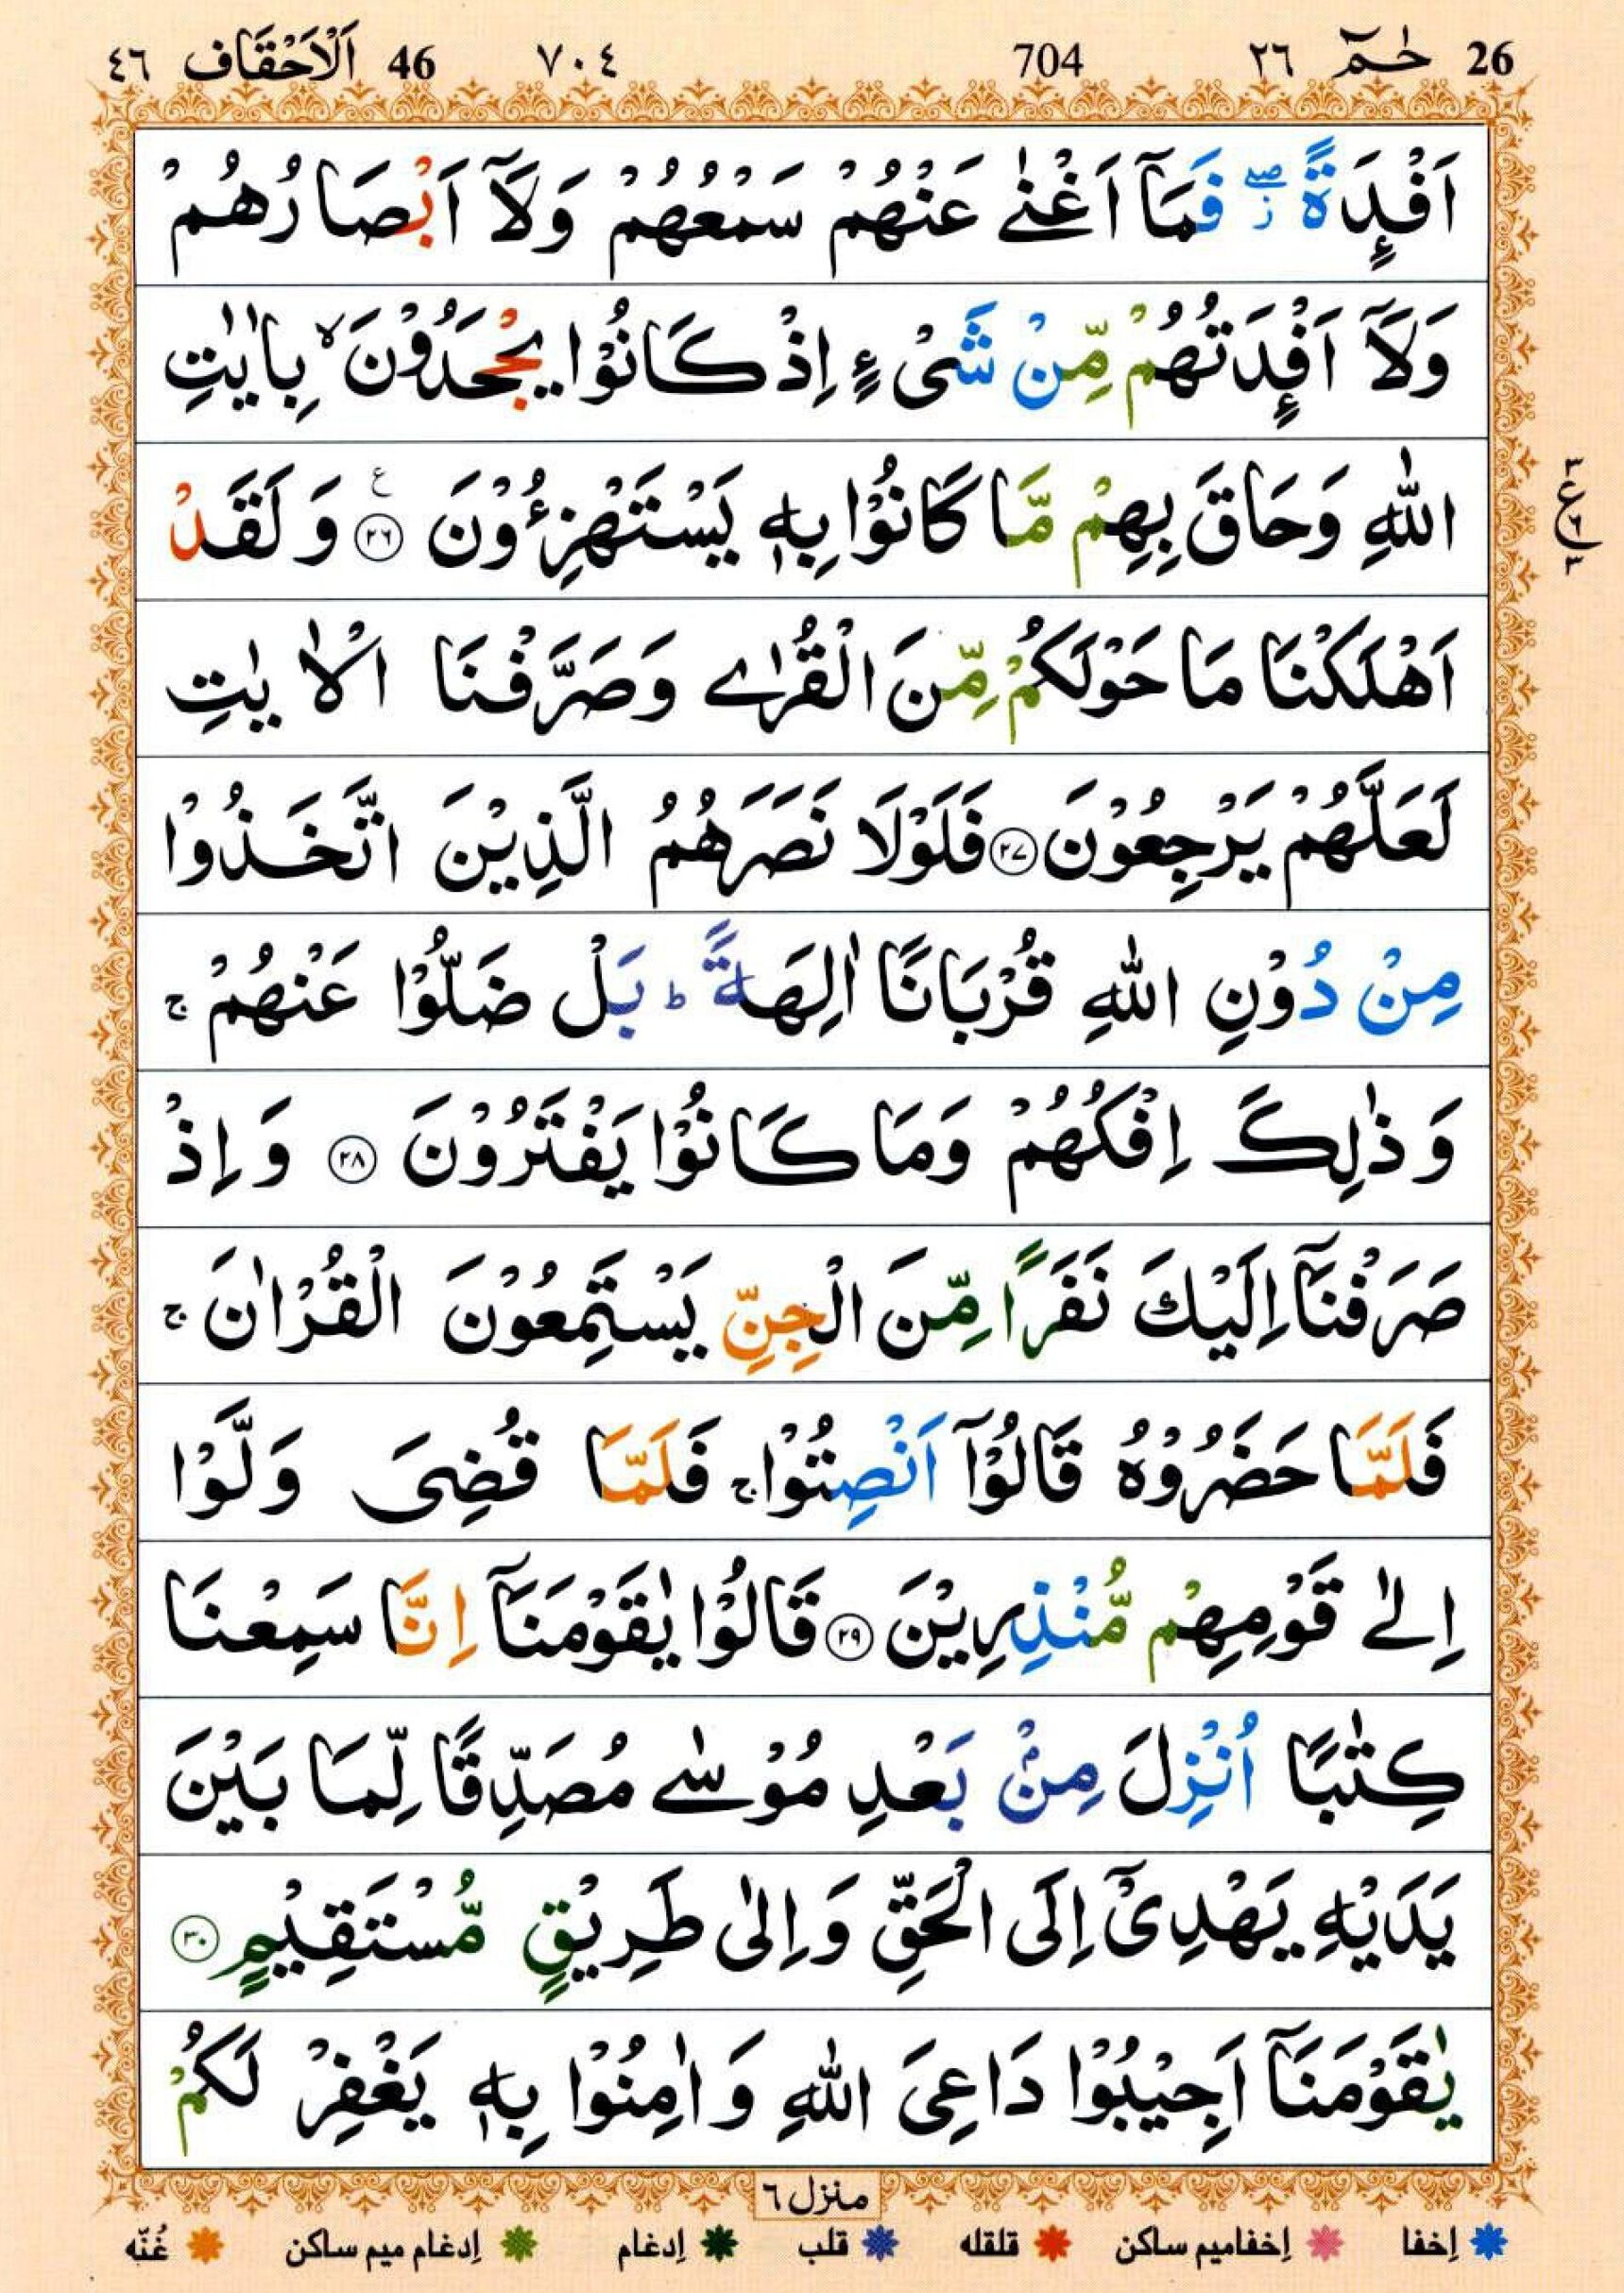 26 حٰمٓ ٢٦ 704 ٧٠٤ 46 اَلْاَحْقَاف ٤٦
اَفْـِٕدَةً ۖز فَمَآ اَغْنٰى عَنْهُمْ سَمْعُهُمْ وَلَآ اَبْصَارُهُمْ
وَلَآ اَفْـِٕدَتُهُمْ مِّنْ شَیْءٍ اِذْ كَانُوْا یَجْحَدُوْنَ ۙ بِاٰیٰتِ
اللّٰهِ وَحَاقَ بِهِمْ مَّا كَانُوْا بِهٖ یَسْتَهْزِءُوْنَ ﴿٢٦﴾ ع وَ لَقَدْ
اَهْلَكْنَا مَا حَوْلَكُمْ مِّنَ الْقُرٰى وَصَرَّفْنَا الْاٰیٰتِ
لَعَلَّهُمْ یَرْجِعُوْنَ ﴿٢٧﴾ فَلَوْلَا نَصَرَهُمُ الَّذِیْنَ اتَّخَذُوْا
مِنْ دُوْنِ اللّٰهِ قُرْبَانًا اٰلِهَةً ؕ بَلْ ضَلُّوْا عَنْهُمْ ۚ
وَ ذٰلِكَ اِفْكُهُمْ وَمَا كَانُوْا یَفْتَرُوْنَ ﴿٢٨﴾ وَ اِذْ
صَرَفْنَاۤ اِلَیْكَ نَفَرًا مِّنَ الْجِنِّ یَسْتَمِعُوْنَ الْقُرْاٰنَ ۚ
فَلَمَّا حَضَرُوْهُ قَالُوْۤا اَنْصِتُوْا ۚ فَلَمَّا قُضِیَ وَلَّوْا
اِلٰى قَوْمِهِمْ مُّنْذِرِیْنَ ﴿٢٩﴾ قَالُوْا یٰقَوْمَنَاۤ اِنَّا سَمِعْنَا
كِتٰبًا اُنْزِلَ مِنْۢ بَعْدِ مُوْسٰى مُصَدِّقًا لِّمَا بَیْنَ
یَدَیْهِ یَهْدِیْۤ اِلَى الْحَقِّ وَ اِلٰى طَرِیْقٍ مُّسْتَقِیْمٍ ﴿٣٠﴾
یٰقَوْمَنَاۤ اَجِیْبُوْا دَاعِیَ اللّٰهِ وَ اٰمِنُوْا بِهٖ یَغْفِرْ لَكُمْ
منزل ٦
إخفا إخفامیم ساکن قلقله قلب إدغام إدغام میم ساکن غُنّه